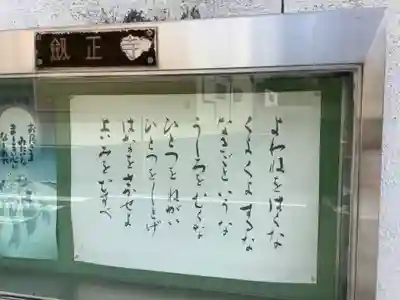 正寺
よわねをはくな
くよくよするな
なきごというな
うしろをむくな
ひとつをねがい
ひとつをしとげ
はなをさかせよ
よいみをむすべ